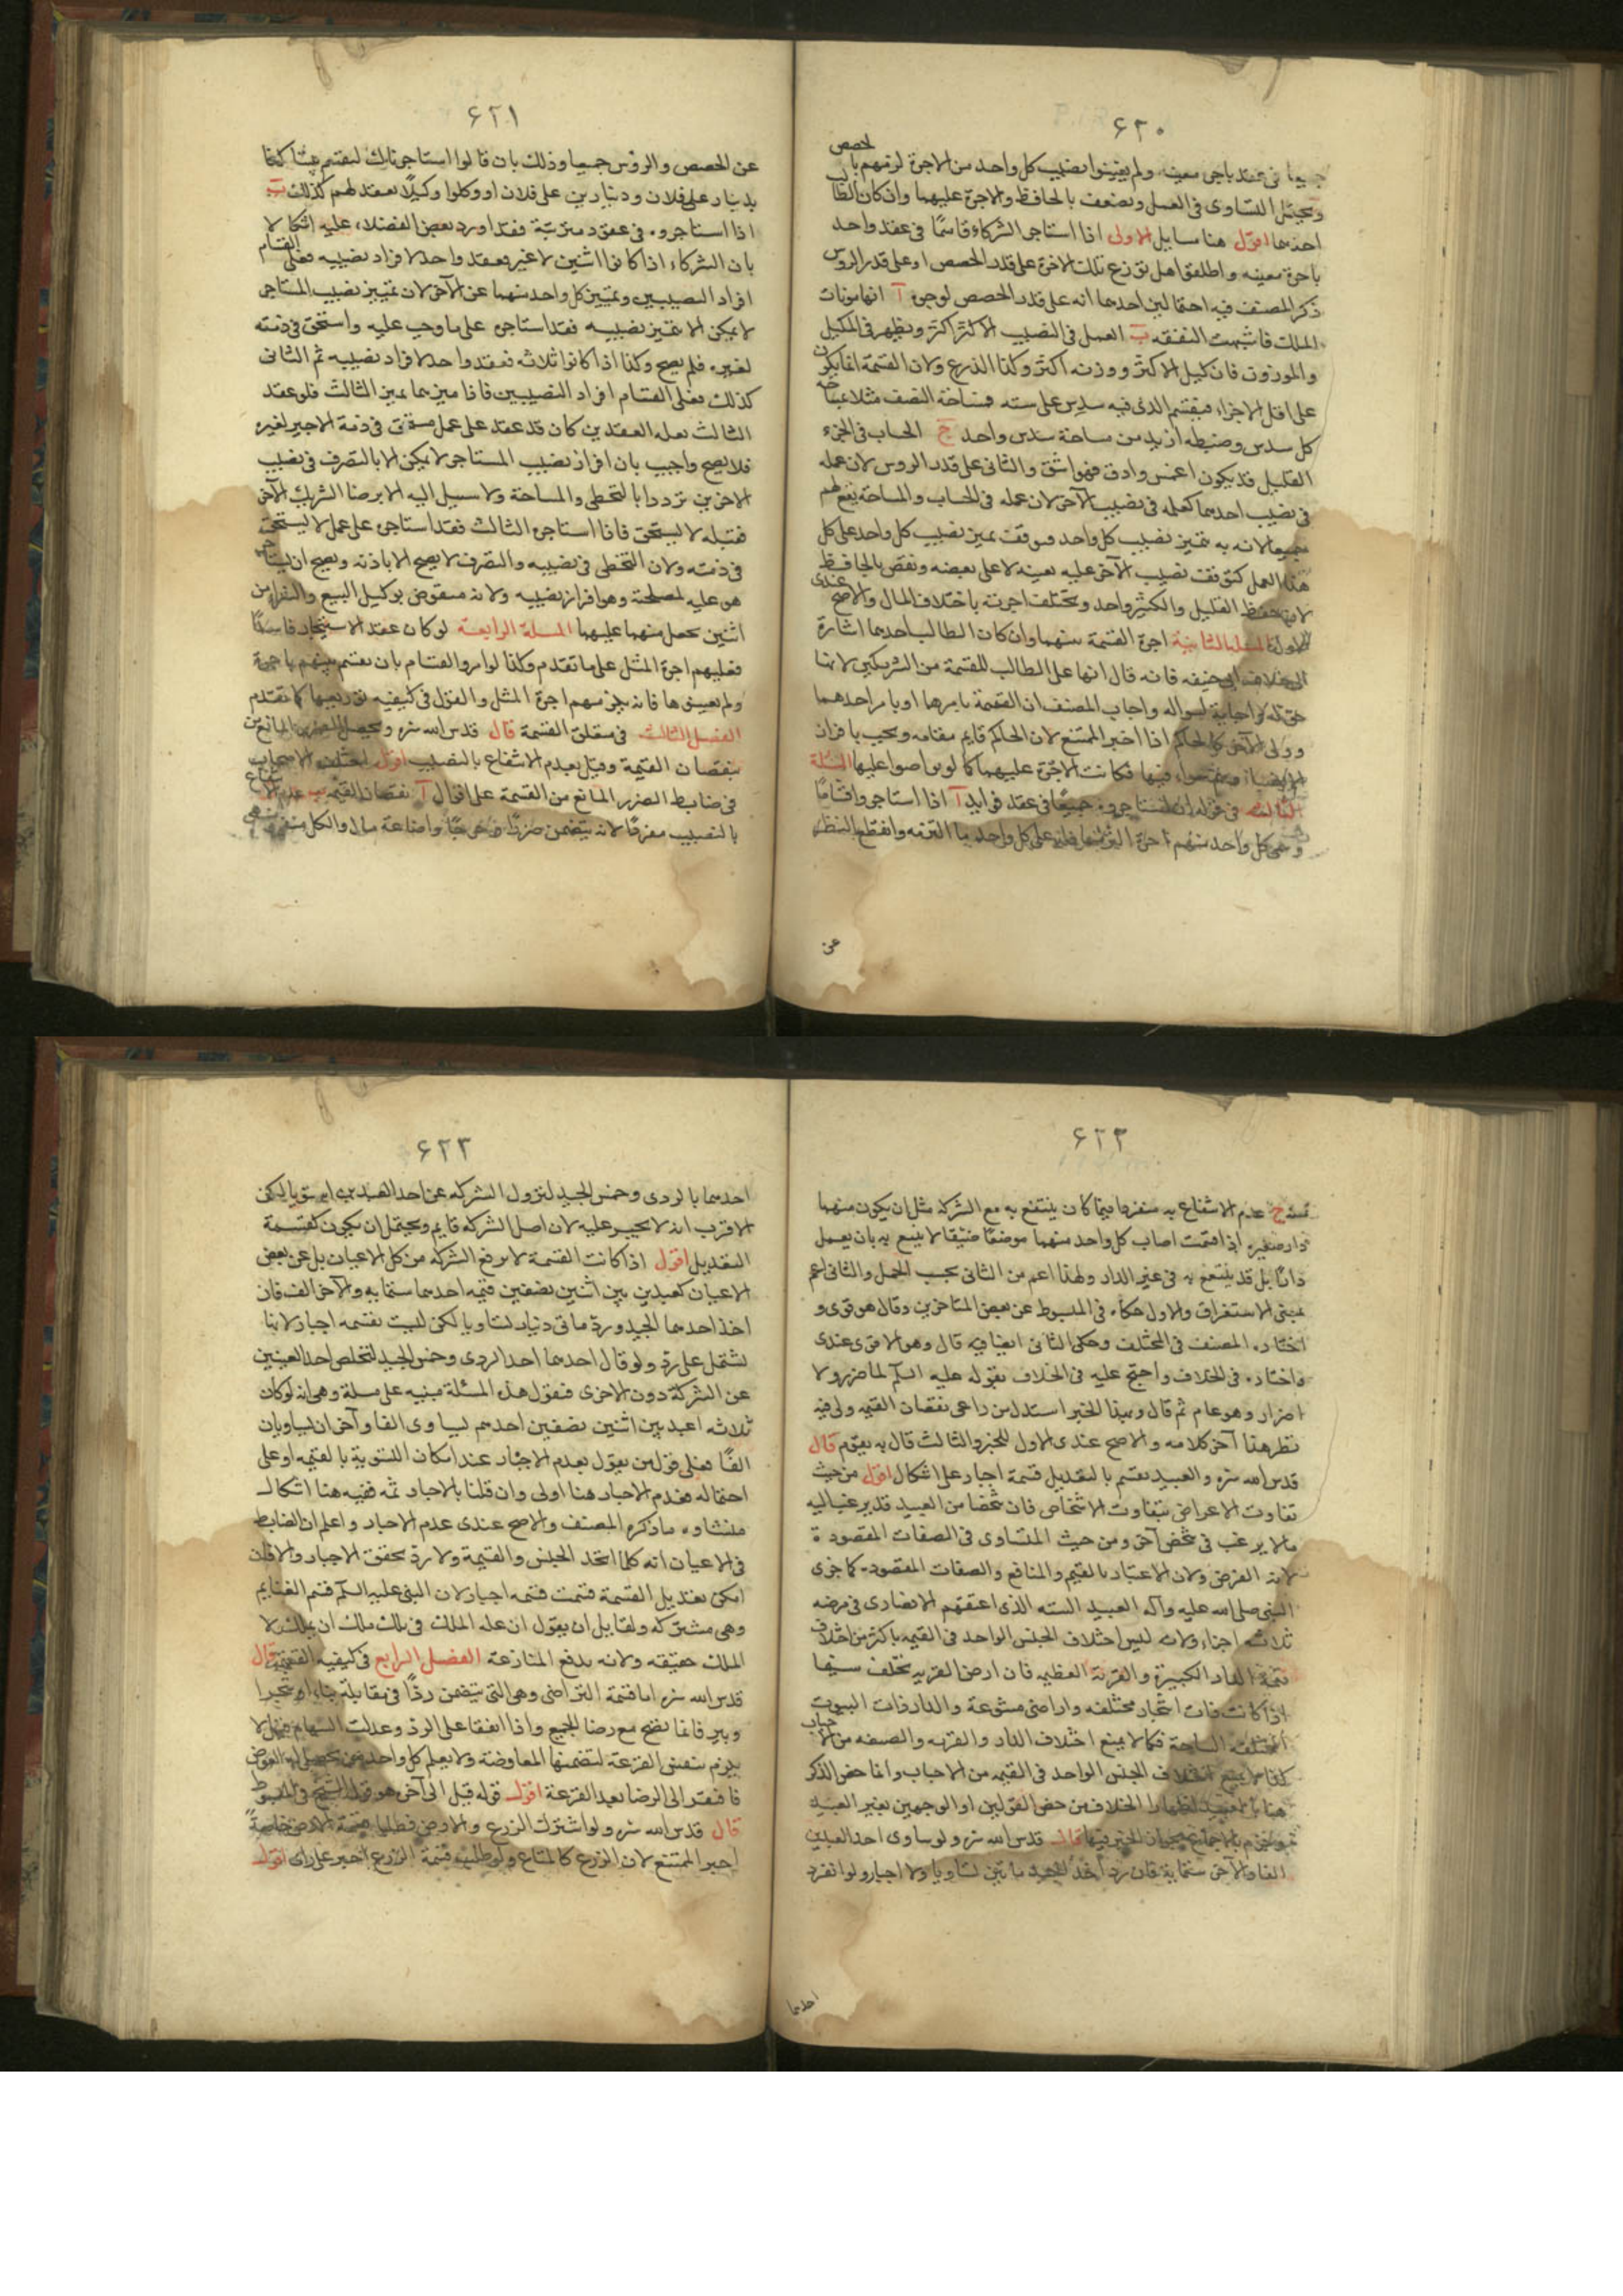 ٤٢٠
لحصص
جميعا فى عقد باجرة معينه ولم يعينوا نصيب كل واحد من الاجرة لزمهم با
ويحتمل التساوى فى العمل ويضعف بالحافظ والاجرة عليهما وان كان الطالب
احدهما اقول هنا مسايل الاولى اذا استاجر الشركاء قاسمًا فى عقد واحد
باجرة معينه واطلقوا هل توزع تلك الاجرة على قدر الحصص او على قدر الروس
ذكر المصنف فيه احتمالين احدهما انه على قدر الحصص لوجوه آ انها مونات
الملك فاشبهت النفقه ب العمل فى النصيب الاكثر اكثر ويظهر فى المكيل
والموزون فان كيل الاكثر ووزنه اكثر وكذا الذرع ولان القسمة انما يكون
على اقل الاجزاء فيقسم الذى فيه سدس على سته فمساحة النصف مثلا
كل سدس وضبطه ازيد من مساحة سدس واحد ج الحساب فى الجزء
القليل قد يكون اغمض وادق فهو اشق والثانى على قدر الروس لان عمله
فى نصيب احدهما كعمله فى نصيب الآخر لان عمله فى الحساب والمساحة يقع لهم
جميعا لانه به تميز نصيب كل واحد فتوقف تميز نصيب كل واحد على كل
هذا العمل كتوقف نصيب الآخر عليه بعينه لا على بعضه ونقض بالحافظ
لان حفظ القليل والكثير واحد ويختلف اجرته باختلاف المال والاصح عندى
الاول المسئلة الثانية اجرة القسمة بينهما وان كان الطالب احدهما اشارة
الى خلاف ابى حنيفه فانه قال انها على الطالب للقسمة من الشريكين لانها
حق له لاجابة لسواله واجاب المصنف ان القسمة بامرها او بامر احدهما
وولى الآخر كالحاكم اذا اخبر الممتنع لان الحاكم قايم مقامه ويجب بافراز
فيها فكانت الاجرة عليهما كما لو تراضوا عليها المسئلة
الثالثه فى قوله ان استاجروه جميعا فى عقد فوايد آ اذا استاجر واقسامًا
وسمى كل واحد منهم اجرة التزمها فله على كل واحد ما التزمه وانقطع النظر
عن
٤٢١
عن الحصص والروس جميعا وذلك بان قالوا استاجرناك لتقسم بيننا كذا
بدينار على فلان ودينارين على فلان او وكلوا وكيلًا يعقد لهم كذلك ب
اذا استاجروه فى عقود مترتبة فقد اورد بعض الفضلاء عليه اشكالا
بان الشركاء اذا كانوا اثنين لا غير فعقد واحد لافراد نصيبه فعلى القسام
افراد النصيبين وتمييز كل واحد منهما عن الآخر لان تمييز نصيب المستاجر
لا يمكن الا بتميز نصيبه فقد استاجر على ما وجب عليه واستحق فى ذمته
لغيره فلم يصح وكذا اذا كانوا ثلاثه فعقد واحد لافراد نصيبه ثم الثانى
كذلك فعلى القسام افراد النصيبين فاذا ميزهما تميز الثالث فلو عقد
الثالث بعد العقدين كان قد عقد على عمل مستحق فى ذمة الاجير لغيره
فلا يصح واجيب بان افراز نصيب المستاجر لا يمكن الا بالتصرف فى نصيب
الاخرين ترددا بالتخطى والمساحة ولا سبيل اليه الا برضا الشريك الآخر
فقبله لا يستحق فاذا استاجره الثالث فقد استاجر على عمل لا يستحق
فى ذمته ولان التخطى فى نصيبه والتصرف لا يصح الا باذنه ويصح ان يستاجر
هو عليه لمصلحته وهو افراز نصيبه ولانه منقوض بوكيل البيع والشراء من
اثنين يحصل منهما عليهما المسئلة الرابعة لو كان عقد الاستيجار فاسدًا
فعليهم اجرة المثل على ما تقدم وكذا لو امروا القسام بان يقسم بينهم باجرة
ولم يعينوها فانه يلزمهم اجرة المثل والقول فى كيفيه توزيعها كما تقدم
الفصل الثالث فى متعلق القسمة قال قدس الله سره ويحصل الضرر المانع من
بنقصان القيمة وقيل بعدم الانتفاع بالنصيب اقول اختلف الاصحاب
فى ضابط الضرر المانع من القسمة على اقوال آ نقصان القيمه ب عدم الانتفاع
بالنصيب مفردًا لانه يتضمن ضررًا وحرجًا واضاعة مال والكل منفى
٤٢٢
عدم الانتفاع به منفردا فيما كان ينتفع به مع الشركة مثل ان يكون منهما
دار صغيرة اذا قسمت اصاب كل واحد منهما موضعًا ضيقا لا ينتفع به بان يعمل
دارًا بل قد ينتفع به فى غير الدار ولهذا اعم من الثانى بحسب الحمل والثانى اعم
بمعنى الاستغراق والاول حكاه فى المبسوط عن بعض المتاخرين وقال هو قوى و
اختاره المصنف فى المختلف وحكى الثانى ايضا فيه قال وهو الاقوى عندى
واختاره فى الخلاف واحتج عليه فى الخلاف بقوله عليه السلم لا ضرر ولا
اضرار وهو عام ثم قال وبهذا الخبر استدل من راعى نقصان القيمه ولى فيه
نظر هذا آخر كلامه والاصح عندى الاول للخبر والثالث قال به يقوم قال
قدس الله سره والعبيد يقسم بالتعديل قسمة اجبار على اشكال اقول من حيث
تفاوت الاعراض بتفاوت الاشخاص فان شخصا من العبيد قد يرغب اليه
ما لا يرغب فى شخص آخر ومن حيث التساوى فى الصفات المقصودة
لانه الغرض ولان الاعتبار بالقيم والمنافع والصفات المقصوده كما جزى
النبى صلى الله عليه وآله العبيد السته الذى اعتقهم الانصارى فى مرضه
ثلاثه اجزاء ولانه ليس اختلاف الجنس الواحد فى القيمه باكثر من اختلاف
قيمة الدار الكبيرة والقرية العظيمه فان ارض القريه تختلف سيما
اذا كانت ذات اشجار مختلفه واراضى متنوعة والدار ذات البيوت
المختلفه الساحة فكما لا يمنع اختلاف الدار والقريه والصنعه من الاجبار
كذا لا يمنع اختلاف الجنس الواحد فى القيمه من الاجبار وانما خص الذكر
هنا بالعبيد لظهار الخلاف من حض القولين او الوجهين بغير العبيد
قال قدس الله سره ولو ساوى احد العبدين
الفا والآخر ستمايه فان رد آخذ الجيد مائتين تساويا ولا اجبار ولو انفرد
احدهما
٤٢٣
احدهما بالردى وخمس الجيد لتزول الشركه عن احد العبدين استويا لكن
الاقرب انه لا يجبر عليه لان اصل الشركه قايم ويحتمل ان يكون كقسمة
التعديل اقول اذا كانت القسمة لا ترفع الشركه من كل الاعيان بل عن بعض
الاعيان كعبدين بين اثنين نصفين قيمه احدهما ستمايه والآخر الف فان
اخذ احدهما الجيد ورد مائتى دينار تساويا لكن ليست بقسمه اجبار لانها
تشتمل على رد ولو قال احدهما اخذ الردى وخمس الجيد لتخلص احد العبدين
عن الشركة دون الاخرى فنقول هذه المسئلة مبنيه على مسلة وهى انه لو كان
ثلاثه اعبد بين اثنين نصفين احدهم يساوى الفا وآخران يساويان
الفًا فعلى قولين بقول بعدم الاجبار عند امكان التسوية بالقيمه او على
احتماله فعدم الاجبار هنا اولى وان قلنا بالاجبار ثمه ففيه هنا اشكال
منشاوه ما ذكره المصنف والاصح عندى عدم الاجبار واعلم ان الضابط
فى الاعيان انه كلما اتحد الجنس والقيمة ولا رد تحقق الاجبار والا فان
امكن تعديل القسمة قسمت قسمه اجبار لان النبى عليه السلم قسم الغنايم
وهى مشتركه ولقايل ان يقول ان عله الملك فى تلك ملك ان يملك لا
الملك حقيقه ولانه يدفع المنازعة الفصل الرابع فى كيفيه القسمة قال
قدس الله سره اما قسمة التراضى وهى التى يتضمن ردًا فى مقابلة بناء او شجر او
وبير فانما تصح مع رضا الجميع واذا اتفقا على الرد وعدلت السهام فهل لا
يلزم بنفس القرعة لتضمنها المعاوضة ولا يعلم كل واحد من يحصل له العوض
فافتقر الى الرضا بعد القرعة اقول قوله قيل الى آخره هو قول الشيخ فى المبسوط
قال قدس الله سره ولو اشترك الزرع والارض فطلبا قسمة الارض خاصةً
اجبر الممتنع لان الزرع كالمتاع ولو طلب قسمة الزرع اجبر على راى اقول